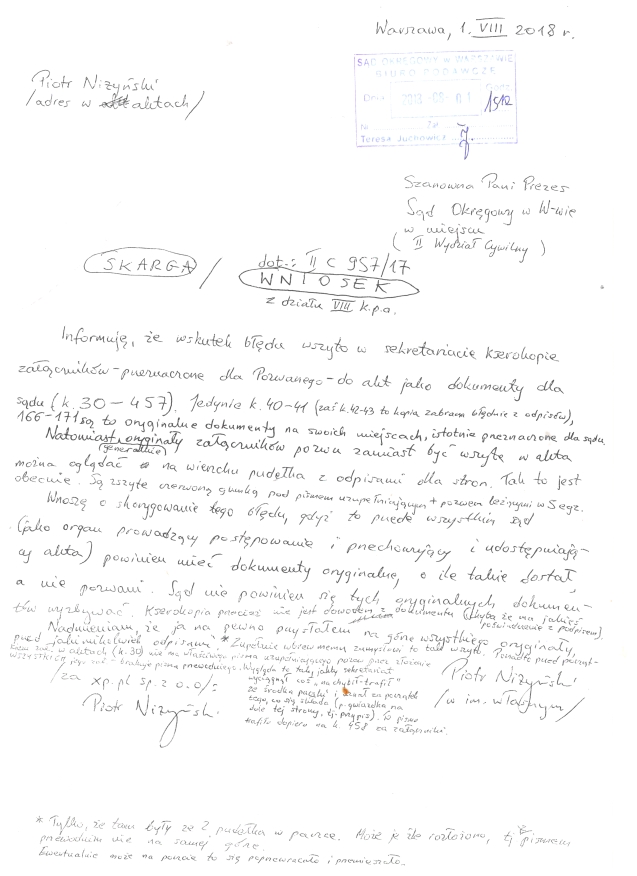 Warszawa, 1. VIII 2018 r.
SĄD OKRĘGOWY w WARSZAWIE
BIURO PODAWCZE
Dnia 2018 -08- 01
Godz. 1512
Nr
Teresa Juchowicz
Piotr Niżyński
/adres w aktach/
Szanowna Pani Prezes
Sąd Okręgowy w W-wie
w miejscu
(II Wydział Cywilny)
dot.: II C 957/17
SKARGA / WNIOSEK
z działu VIII k.p.a.
Informuję, że wskutek błędu wszyto w sekretariacie kserokopie
załączników - przeznaczone dla Pozwanego - do akt jako dokumenty dla
sądu (k. 30 – 457). Jedynie k. 40-41 (zaś k. 42-43 to kopia zabrana błędnie z odpisów),
166-171 są to oryginalne dokumenty na swoich miejscach, istotnie przeznaczone dla sądu.
Natomiast oryginały załączników pozwu zamiast być wszyte w akta
(generalnie)
można oglądać na wierzchu pudełka z odpisami dla stron. Tak to jest
obecnie. Są zszyte czerwoną gumką pod pismem uzupełniającym + pozwem leżącymi w 5 egz.
Wnoszę o skorygowanie tego błędu, gdyż to przede wszystkim sąd
(jako organ prowadzący postępowanie i przechowujący i udostępniają-
cy akta) powinien mieć dokumenty oryginalne, o ile takie dostał,
a nie pozwani. Sąd nie powinien się tych oryginalnych dokumen-
tów wyzbywać. Kserokopia przecież nie jest dowodem z dokumentu (chyba że ma jakieś
poświadczenie z podpisem).
Nadmieniam, że ja na pewno przysłałem na górze wszystkiego oryginały,
przed jakimikolwiek odpisami.* Zupełnie wbrew memu zamysłowi to tak wszyto. Ponadto przed
kiem zał. w aktach (k. 30) nie ma właściwego pisma uzupełniającego pozew
WSZYSTKICH jego zał. - brakuje pisma przewodniego. Wygląda to tak, jakby sekretariat
wyciągnął coś "na chybił-trafił"
ze środka paczki i uznał za początek
tego, co się składa (p. gwiazdka na
dole tej strony, tj. przypis). W pismo
trafiło dopiero na k. 458 za załącznikami.
/za xp.pl sp. z o.o/:
Piotr Niżyński
Piotr Niżyński
/w im. własnym/
* Tylko, że tam były ze 2 pudełka w paczce. Może je źle rozłożono, tj. z pismem
przewodnim nie na samej górze.
Ewentualnie może na poczcie to się poprzewracało i przemieszało.